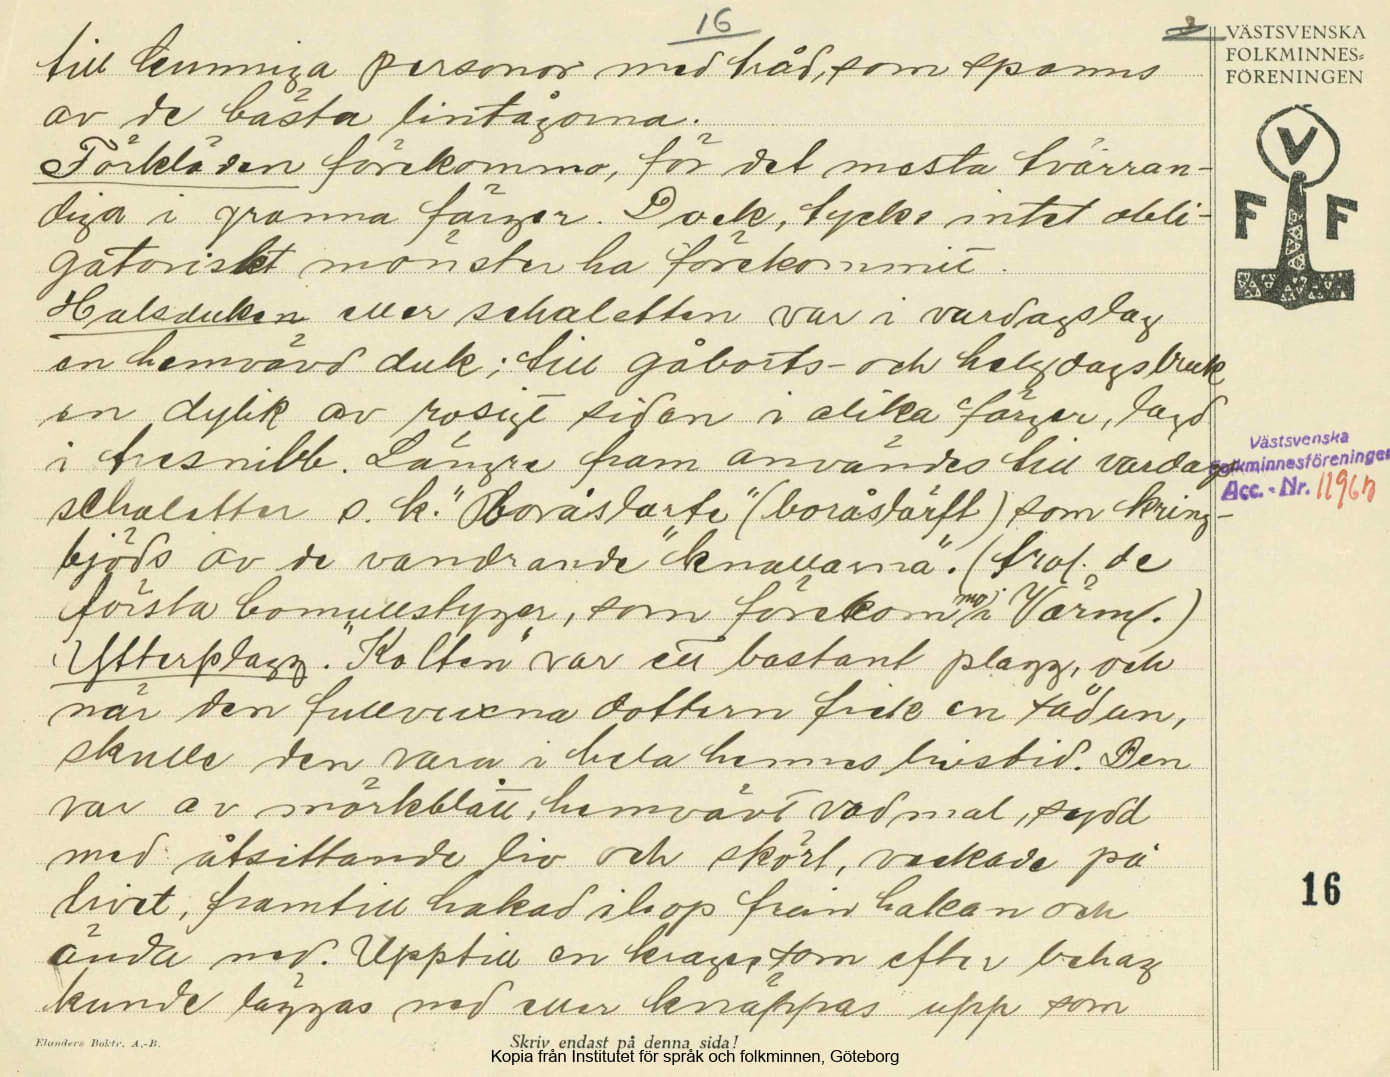 16
VÄSTSVENSKA
FOLKMINNES-
FÖRENINGEN
V
F F
till kunniga personor med tråd, som spanns
av de bästa lintågorna.
Förkläden förekommo, för det mesta tvärran-
diga i granna färger. Dock, tycks intet obli-
gatoriskt mönster ha förekommit.
Halsduken eller schaletten var i vardagslag
en hemvävd duk; till gåborts- och helgdagsbruk
en dylik av rosigt siden i olika färger, lagd
i tresnibb. Längre fram användes till vardags
schaletter s.k. "boråslarte" (boråslärft) som kring-
bjöds av de vandrande "knallarna". (trol. de
första bomullstyger, som förekommo i Värml.)
Ytterplagg. "Kolten" var ett bastant plagg, och
när den fullvuxna dottern fick en sådan,
skulle den vara i hela hennes livstid. Den
var av mörkblått, hemvävt vadmal, sydd
med åtsittande liv och skört, veckade på
livet, framtill hakad ihop från hakan och
ända ned. Upptill en krage, som efter behag
kunde läggas ned eller knäppas upp som
Västsvenska
Folkminnesföreningen
Acc. - Nr.
16
Elanders Boktr. A.-B.
Skriv endast på denna sida!
Kopia från Institutet för språk och folkminnen, Göteborg